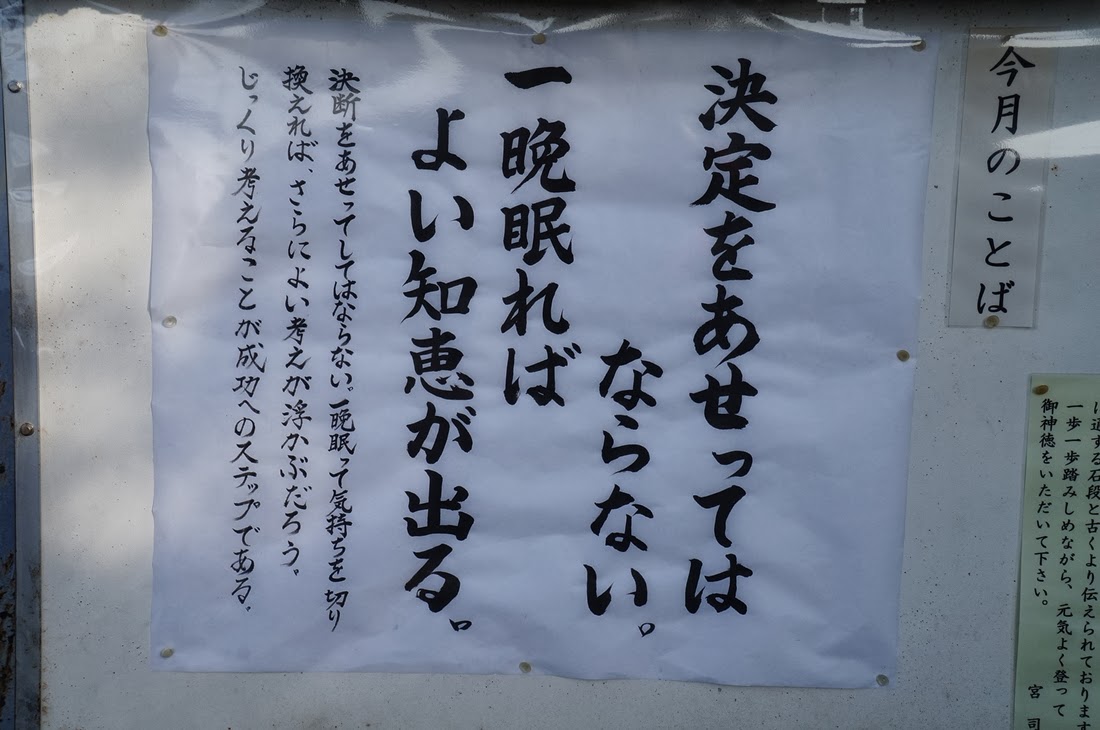 今月のことば
決定をあせっては
ならない。
一晩眠れば
よい知恵が出る。
決断をあせってしてはならない。一晩眠って気持ちを切り
換えれば、さらによい考えが浮かぶだろう。
じっくり考えることが成功へのステップである。
に通する石段と古くより伝えられております
一歩一歩踏みしめながら、元気よく登って
御神徳をいただいて下さい。
宮司